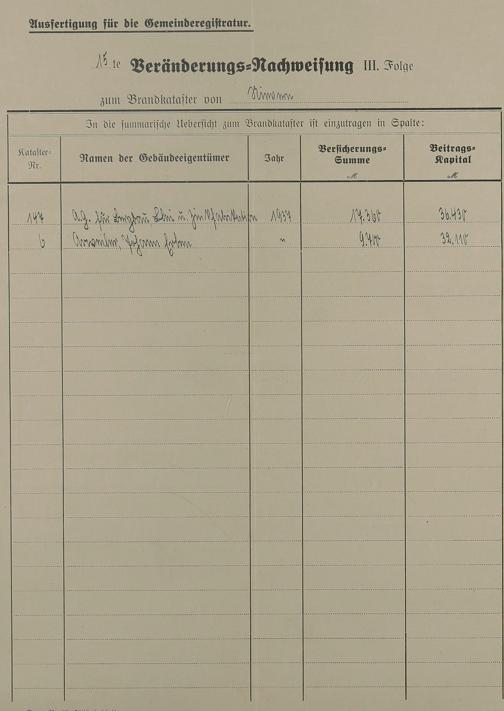 Ausfertigung für die Gemeinderegistratur.
15 te Veränderungs=Nachweisung III. Folge
zum Brandkataster von
In die summarische Uebersicht zum Brandkataster ist einzutragen in Spalte:
Kataster-Nr. Namen der Gebäudeeigentümer Jahr Versicherungs-Summe Beitrags-Kapital
ℳ ℳ
147 A.G. für Bergbau, Blei u. Zinkfabrikation 1937 17.360 36.430
6 Johann 〃 9.700 32.110